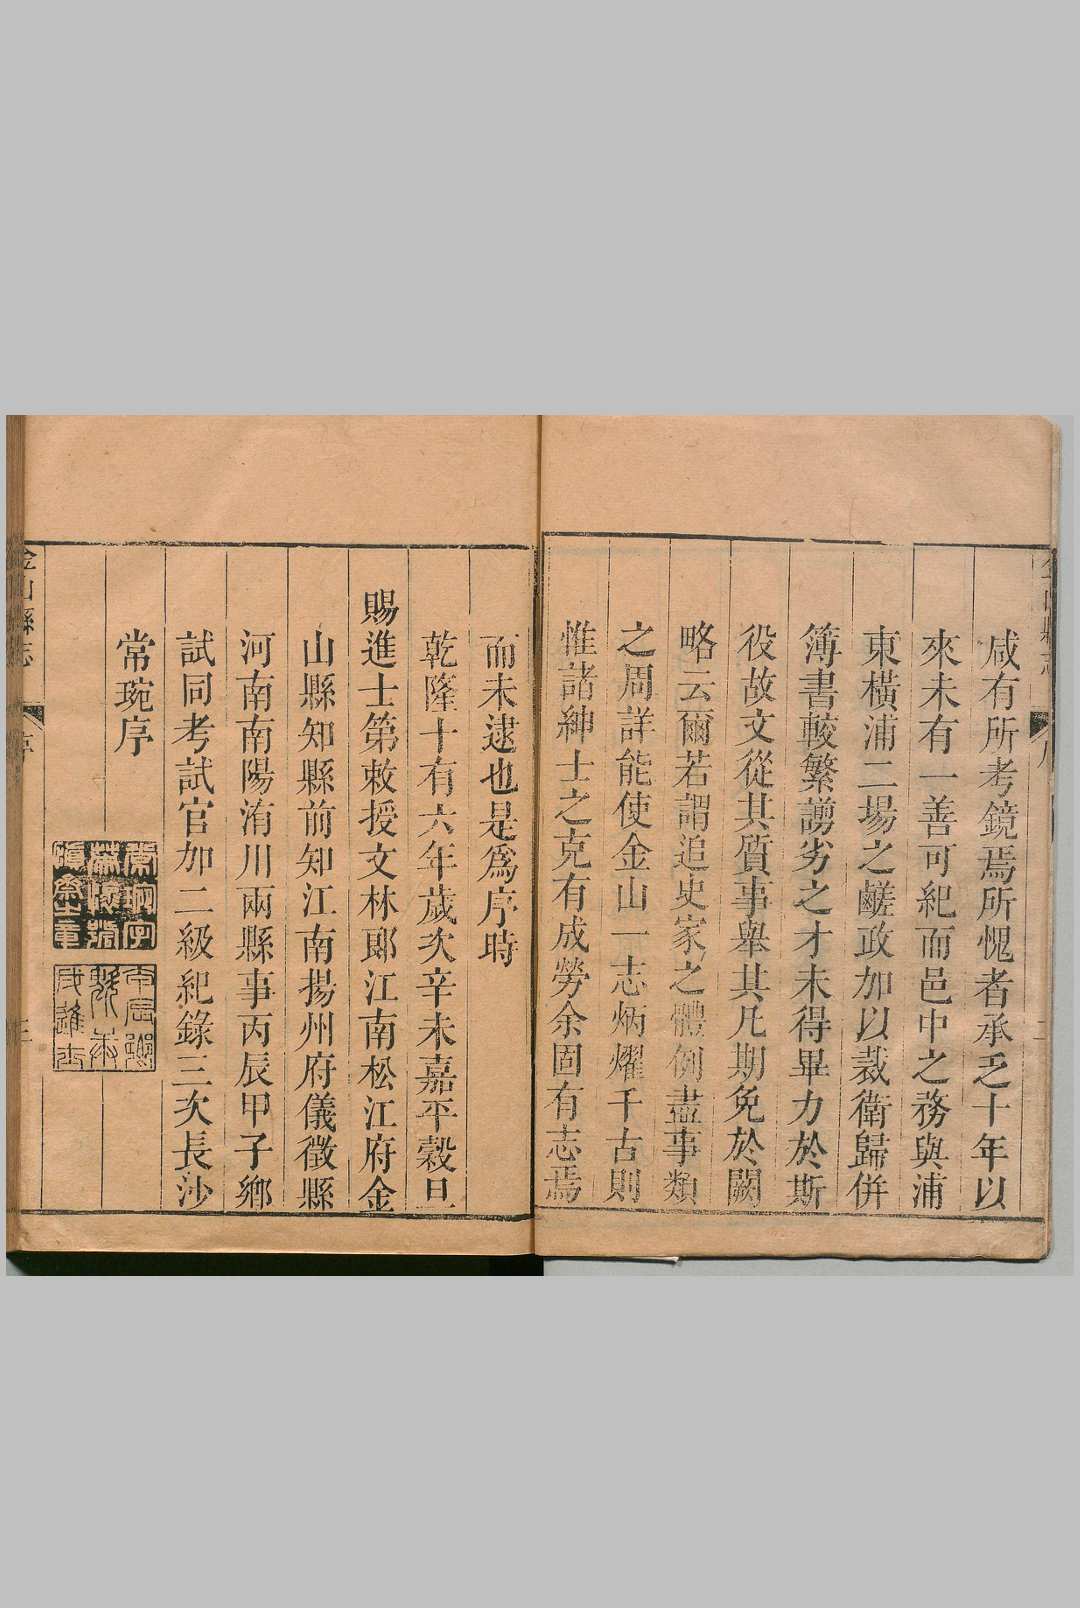 咸有所考鏡焉所愧者承乏十年以
來未有一善可紀而邑中之務與浦
東橫浦二場之鹺政加以裁衛歸併
簿書較繁謭劣之才未得畢力於斯
役故文從其質事舉其凡期免於闕
略云爾若謂追史家之體例盡事類
之周詳能使金山一志炳燿千古則
惟諸紳士之克有成勞余固有志焉
而未逮也是爲序時
乾隆十有六年歲次辛未嘉平穀旦
賜進士第敕授文林郎江南松江府金
山縣知縣前知江南揚州府儀徵縣
河南南陽淯川兩縣事丙辰甲子鄉
試同考試官加二級紀錄三次長沙
常琬序
金山縣志
序
三